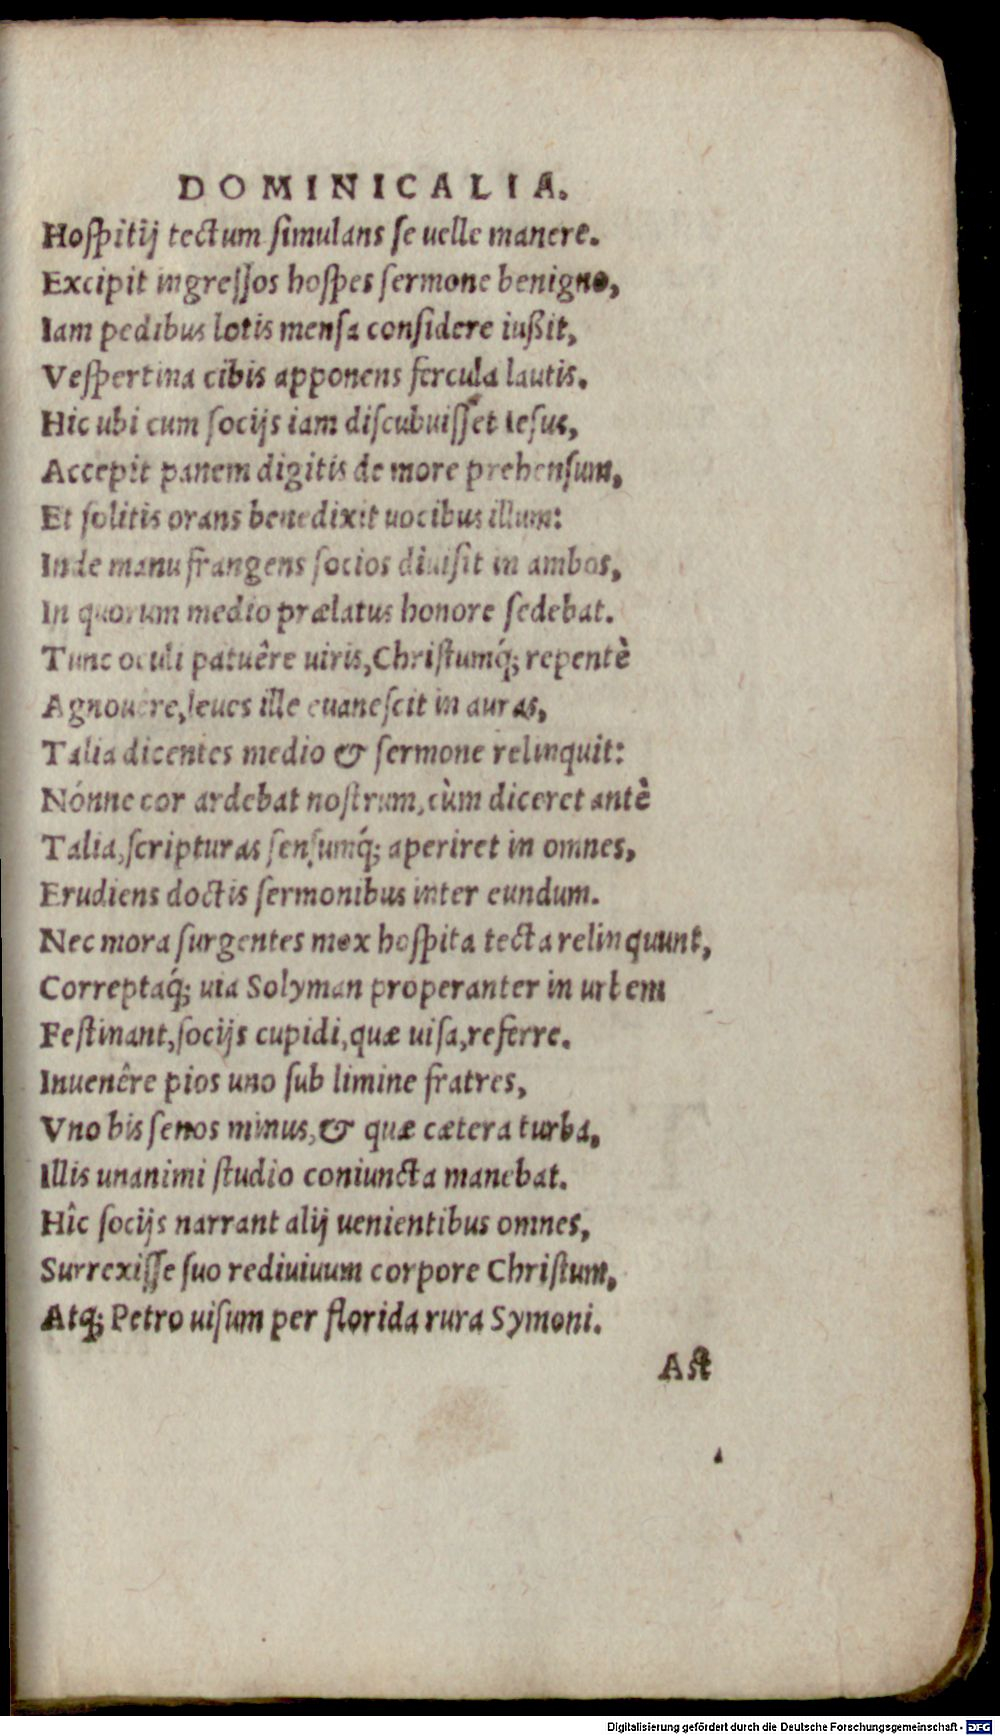 DOMINICALIA.
Hoſpitij tectum ſimulans ſe uelle manere.
Excipit ingreſſos hoſpes ſermone benigno,
Iam pedibus lotis menſa conſidere iußit,
Veſpertina cibis apponens fercula lautis.
Hic ubi cum ſocijs iam diſcubuiſſet Ieſus,
Accepit panem digitis de more prehenſum,
Et ſolitis orans benedixit uocibus illum:
Inde manu frangens ſocios diuiſit in ambos,
In quorum medio prælatus honore ſedebat.
Tunc oculi patuêre uiris, Chriſtumq́; repentè
Agnouere, leues ille euaneſcit in auras,
Talia dicentes medio & ſermone relinquit:
Nónne cor ardebat noſtrum, cùm diceret antè
Talia, ſcripturas ſenſumq́; aperiret in omnes,
Erudiens doctis ſermonibus inter eundum.
Nec mora ſurgentes mox hoſpita tecta relinquunt,
Correptaq́; uia Solyman properanter in urbem
Feſtinant, ſocijs cupidi, quæ uiſa, referre.
Inuenêre pios uno ſub limine fratres,
Vno bis ſenos minus, & quæ cætera turba,
Illis unanimi ſtudio coniuncta manebat.
Hîc ſocijs narrant alij uenientibus omnes,
Surrexiſſe ſuo rediuiuum corpore Chriſtum,
Atq; Petro uiſum per florida rura Symoni.
Aſt
Digitalisierung gefördert durch die Deutsche Forschungsgemeinschaft - DFG